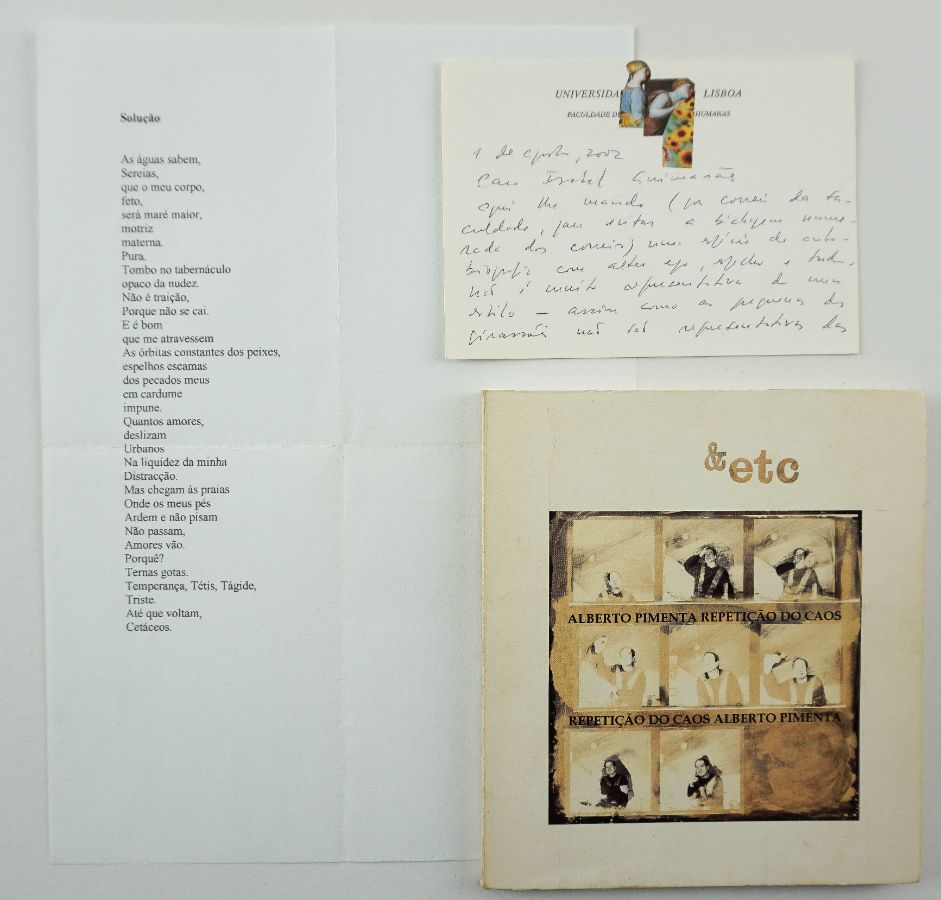 Solução
As águas sabem,
Sereias,
que o meu corpo,
feto,
será maré maior,
motriz
materna.
Pura.
Tombo no tabernáculo
opaco da nudez.
Não é traição,
Porque não se cai.
E é bom
que me atravessem
As órbitas constantes dos peixes,
espelhos escamas
dos pecados meus
em cardume
impune.
Quantos amores,
deslizam
Urbanos
Na liquidez da minha
Distracção.
Mas chegam às praias
Onde os meus pés
Ardem e não pisam
Não passam,
Amores vão.
Porquê?
Ternas gotas.
Temperança, Tétis, Tágide,
Triste.
Até que voltam,
Cetáceos.
UNIVERSIDA LISBOA
FACULDADE DE HUMANAS
1 de agosto, 2002
Cara Isabel Guimarães
aqui lhe mando (por correio da fa-
culdade, para evitar a bichagem nume-
rada dos correios) uma espécie de auto-
biografia com alter ego, espelho e tudo.
Não é muito representativa do meu
estilo – assim como as pequenas dos
girassóis não são representativas das
&etc
ALBERTO PIMENTA REPETIÇÃO DO CAOS
REPETIÇÃO DO CAOS ALBERTO PIMENTA